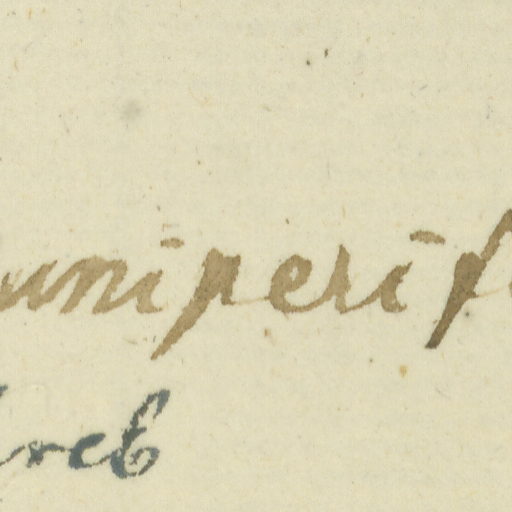 uniperif
reb